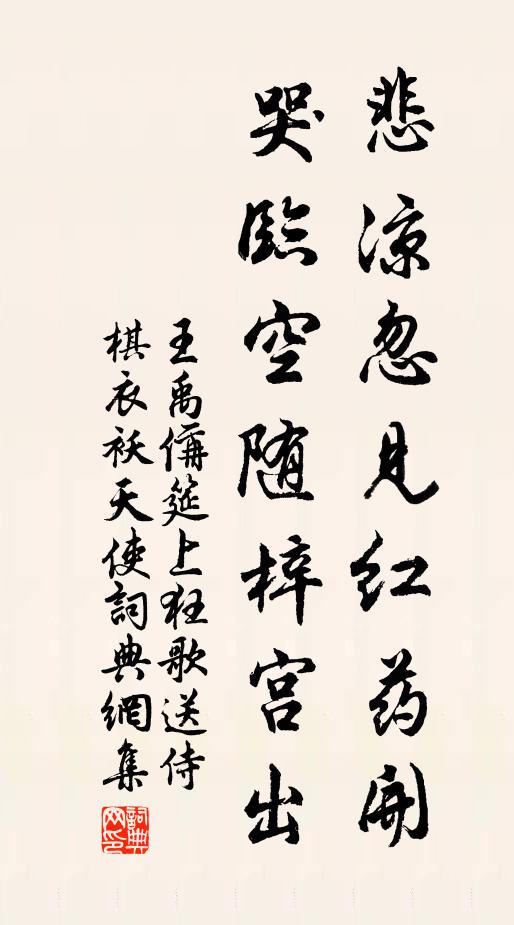 悲凉忽见红药开
哭临空随梓宫出
王禹偁筵上狂歌送侍
棋衣袄天使詞典網集
詞典
网印